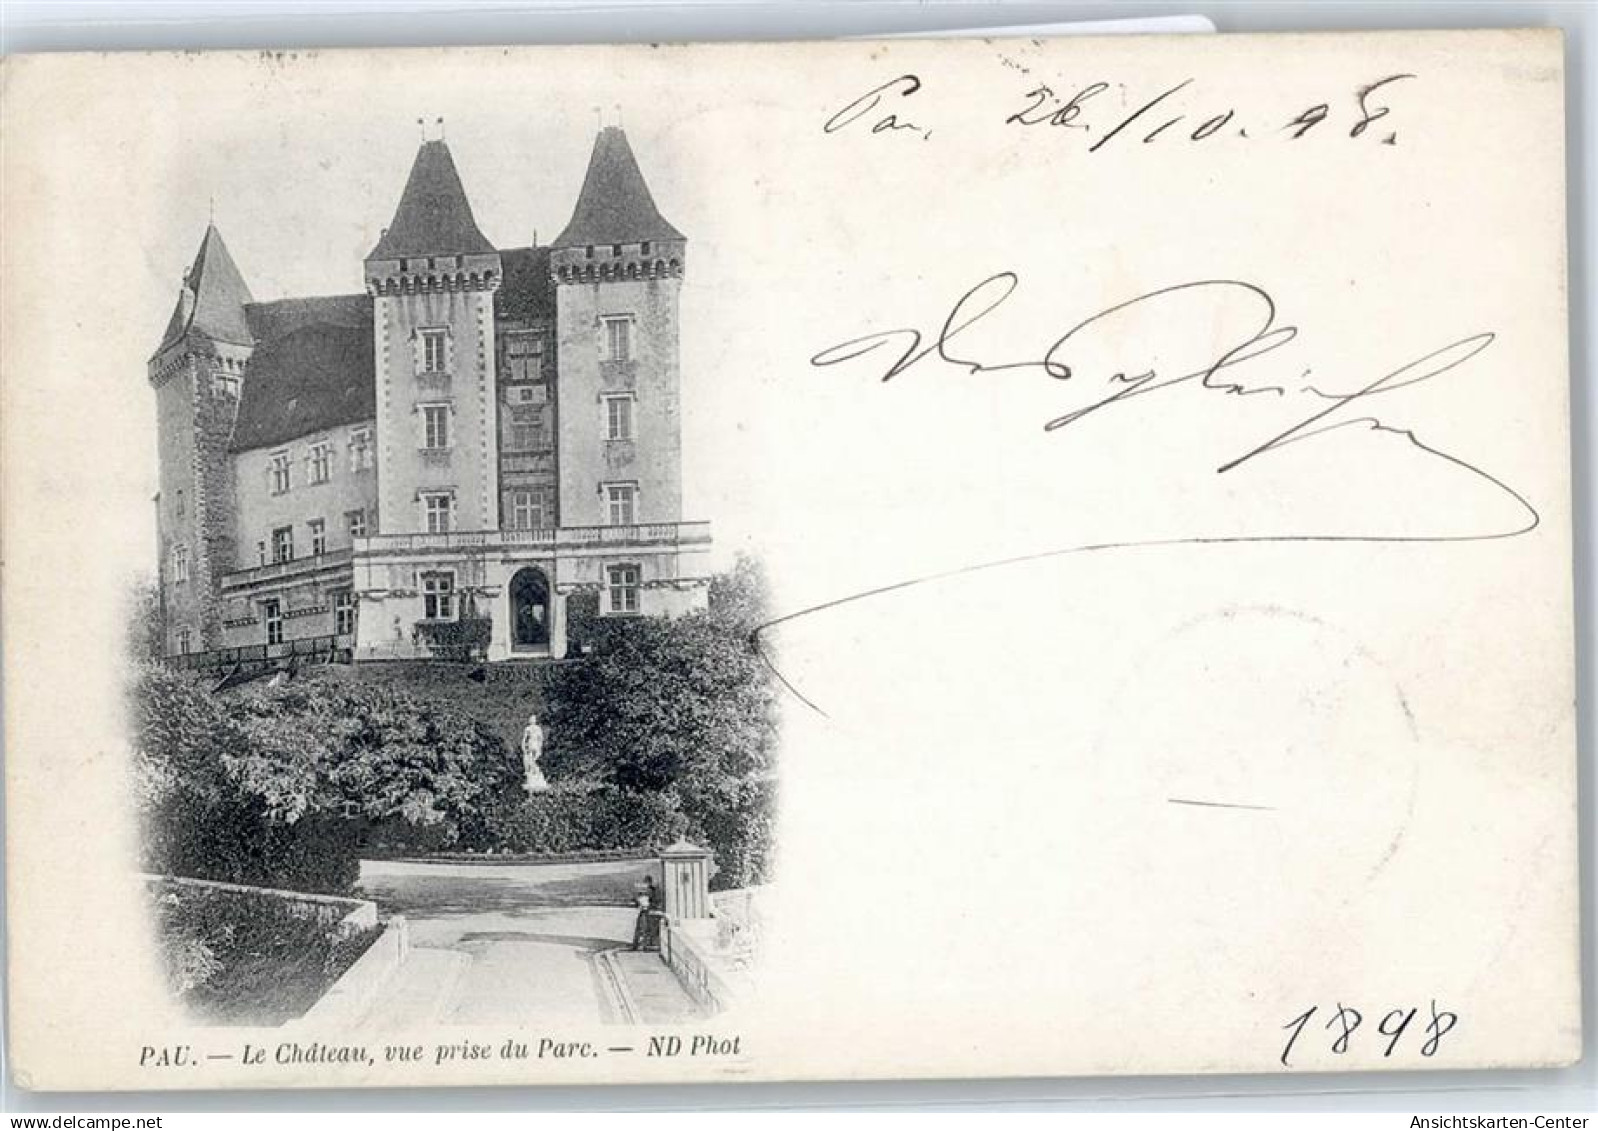 Pau, 26./10.98.
1898
PAU. — Le Château, vue prise du Parc. — ND Phot
delcampe.net
Ansichtskarten-Center